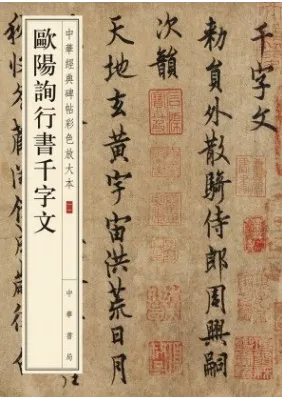 千字文
勅員外散騎侍郎周興嗣
次韻
天地玄黃宇宙洪荒日月
中華經典碑帖彩色放大本
歐陽詢行書千字文
中華書局